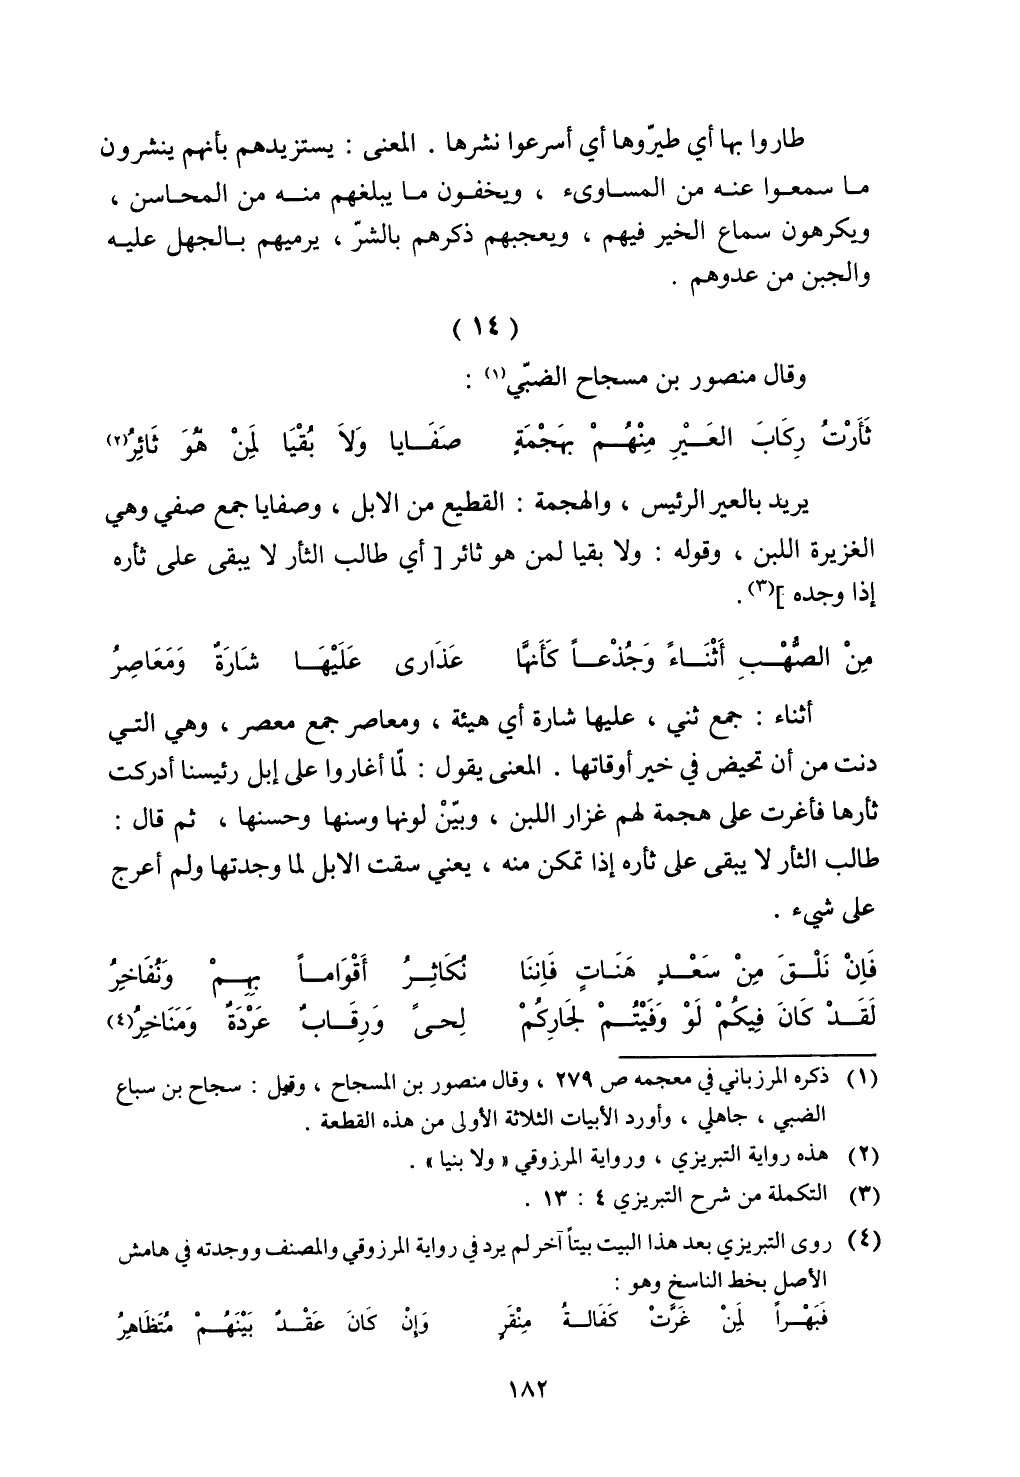 طاروا بها أي طيّروها أي أسرعوا نشرها . المعنى : يستزيدهم بأنهم ينشرون
ما سمعوا عنه من المساوىء ، ويخفون ما يبلغهم منه من المحاسن ،
ويكرهون سماع الخير فيهم ، ويعجبهم ذكرهم بالشرّ ، يرميهم بالجهل عليه
والجبن من عدوهم .
( ١٤ )
وقال منصور بن مسجاح الضبّي(١) :
ثَأَرْتُ رِكَابَ العَيْرِ مِنْهُمْ بِهَجْمَةٍ صَفَايا وَلاَ بُقْيَا لِمَنْ هُوَ ثَائِرُ(٢)
يريد بالعير الرئيس ، والهجمة : القطيع من الابل ، وصفايا جمع صفي وهي
الغزيرة اللبن ، وقوله : ولا بقيا لمن هو ثائر [ أي طالب الثأر لا يبقى على ثأره
إذا وجده ](٣) .
مِنْ الصُّهْبِ أَثْنَاءً وَجُذْعاً كَأَنهَّا عَذَارى عَلَيْهَا شَارَةٌ وَمَعَاصِرُ
أثناء : جمع ثني ، عليها شارة أي هيئة ، ومعاصر جمع معصر ، وهي التي
دنت من أن تحيض في خير أوقاتها . المعنى يقول : لمّا أغاروا على إبل رئيسنا أدركت
ثأرها فأغرت على هجمة لهم غزار اللبن ، وبيّنْ لونها وسنها وحسنها ، ثم قال :
طالب الثأر لا يبقى على ثأره إذا تمكن منه ، يعني سقت الابل لما وجدتها ولم أعرج
على شيء .
فَإِنْ نَلْقَ مِنْ سَعْدٍ هَنَاتٍ فَإِننَا نُكَاثِرُ أَقْوَاماً بِهِمْ وَنُفَاخِرُ
لَقَدْ كَانَ فِيكُمْ لَوْ وَفَيْتُمْ لِجَارِكُمْ لِحىً وَرِقَابٌ عَرْدَةٌ وَمَنَاخِرُ(٤)
(١) ذكره المرزباني في معجمه ص ٢٧٩ ، وقال منصور بن المسجاح ، وقيل : سجاح بن سباع
الضبي ، جاهلي ، وأورد الأبيات الثلاثة الأولى من هذه القطعة .
(٢) هذه رواية التبريزي ، ورواية المرزوقي « ولا بنيا » .
(٣) التكملة من شرح التبريزي ٤ : ١٣ .
(٤) روى التبريزي بعد هذا البيت بيتاً آخر لم يرد في رواية المرزوقي والمصنف ووجدته في هامش
الأصل بخط الناسخ وهو :
فَبَهْراً لِمَنْ غَرَّتْ كَفَالةُ مِنْقَرٍ وَإِنْ كَانَ عَقْدٌ بَيْنَهُمْ مُتَظَاهِرُ
١٨٢